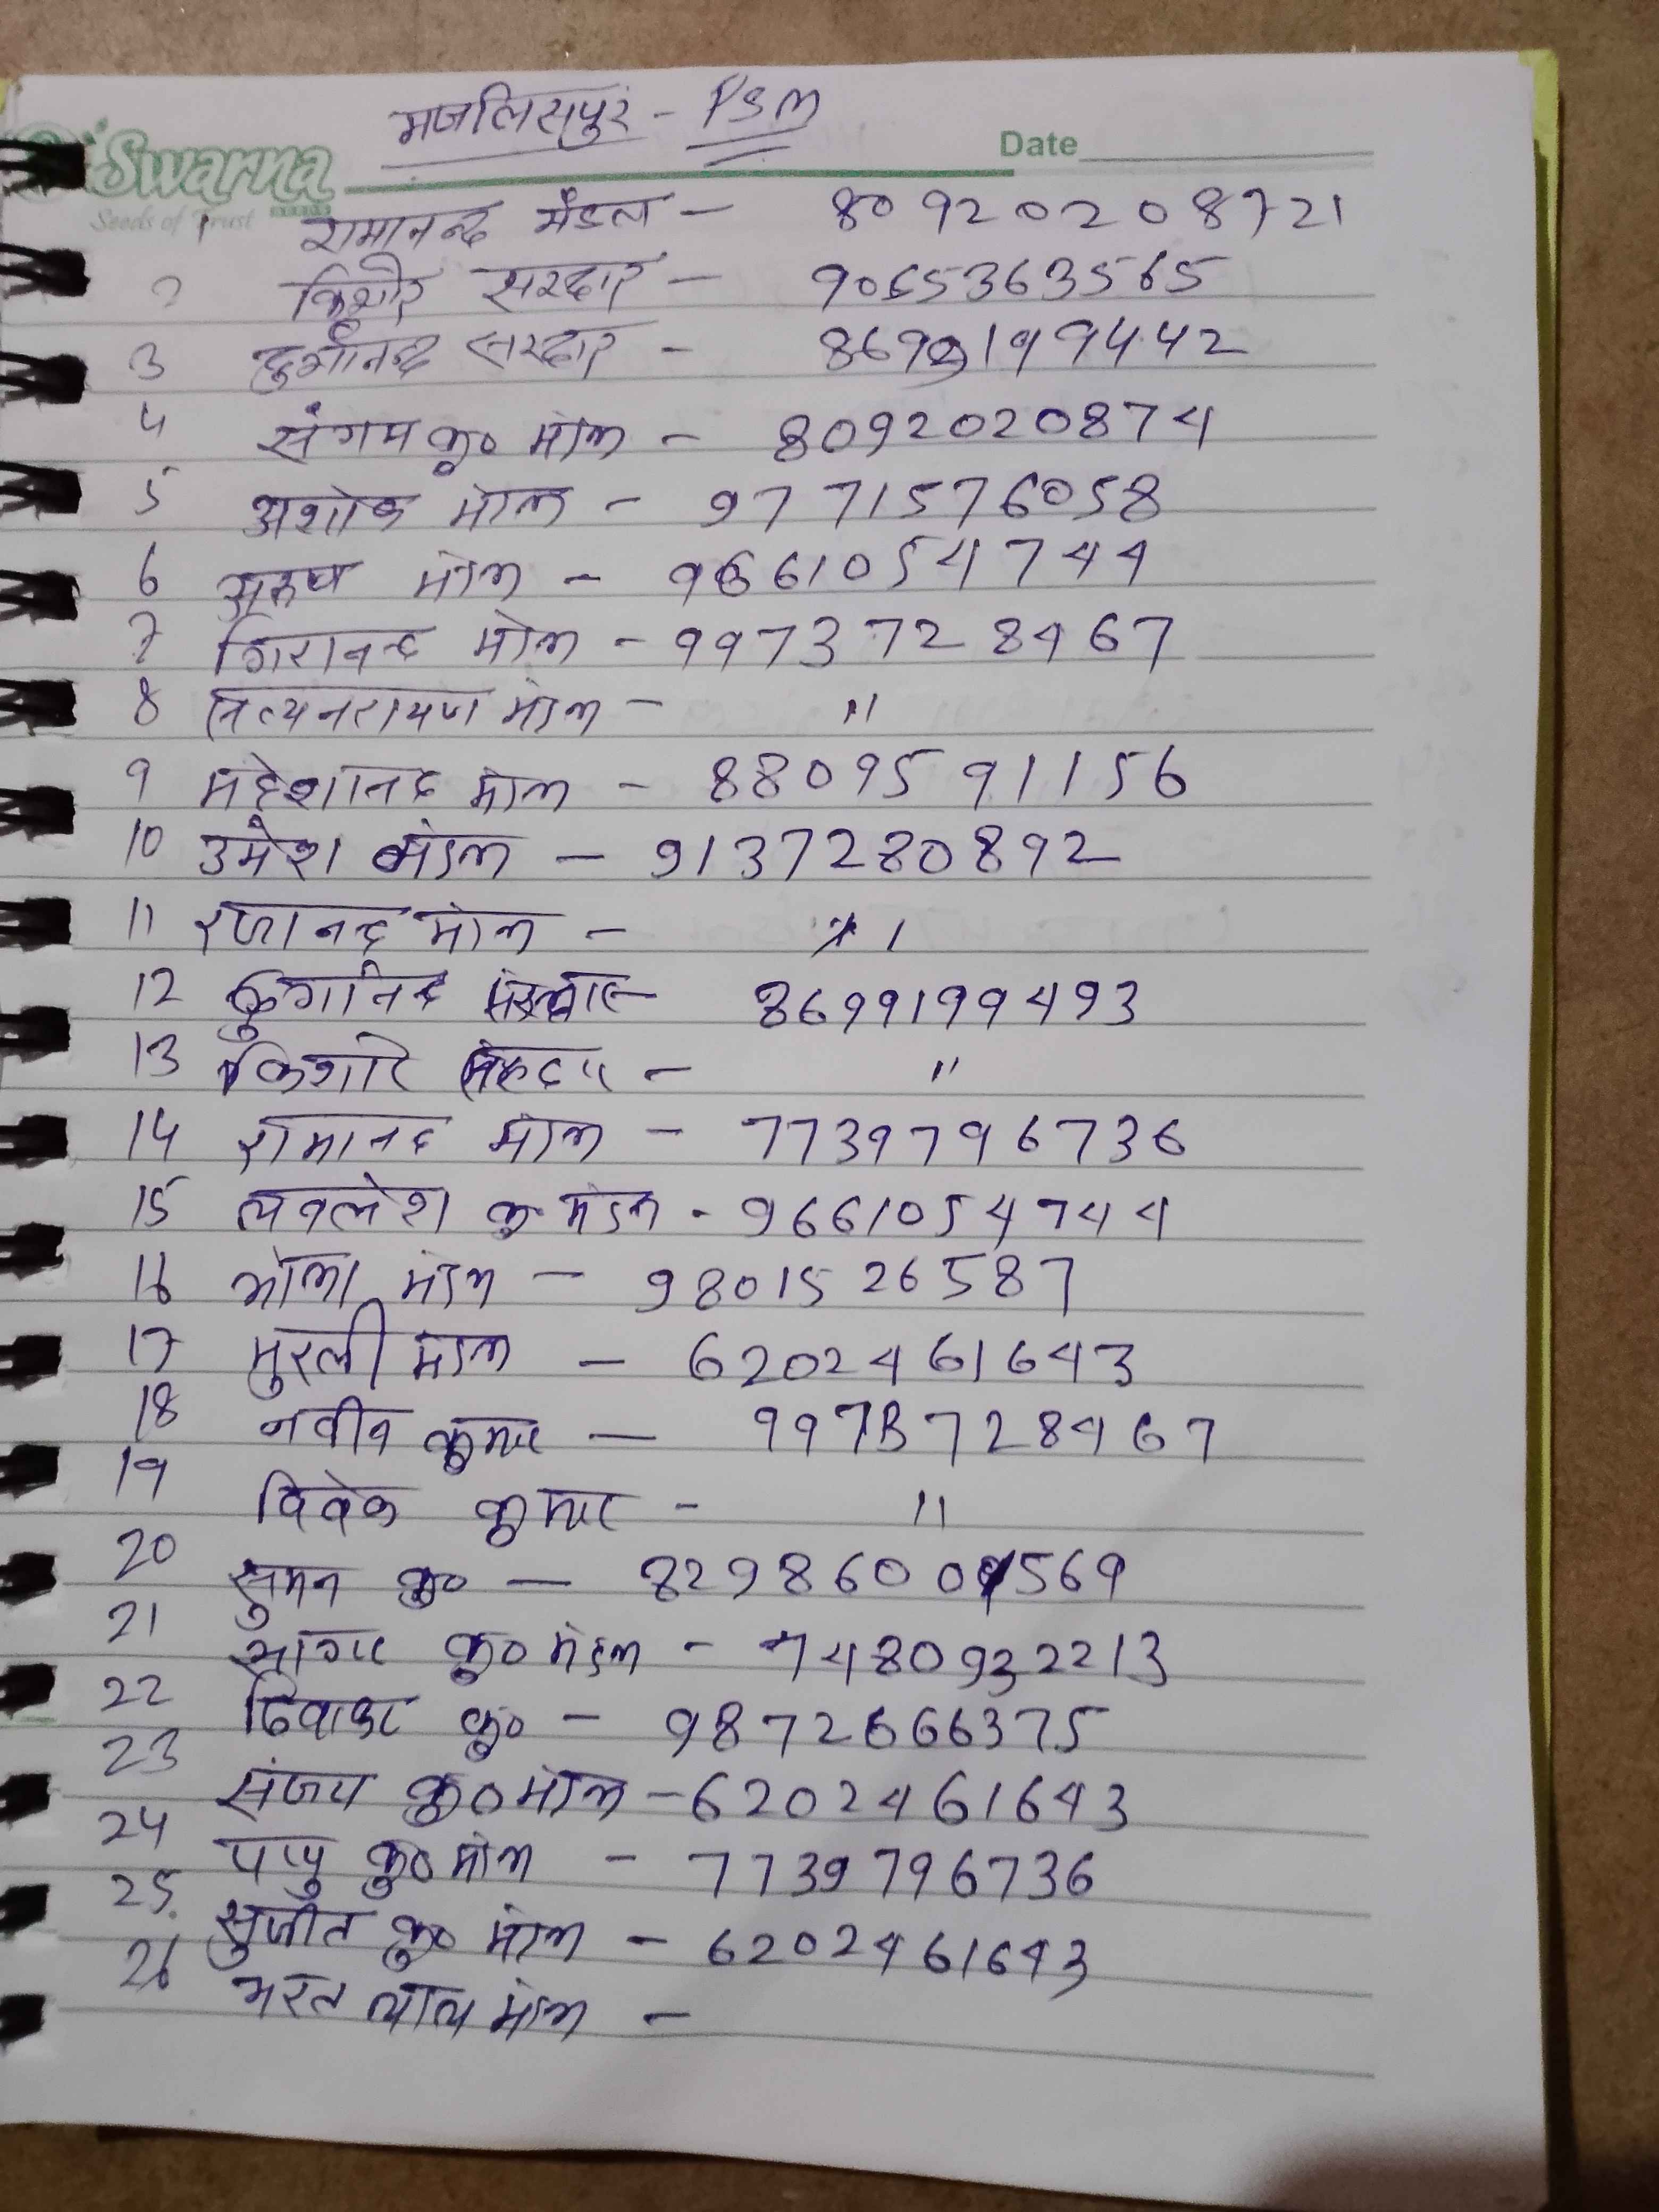 मजलिसपुर - PSM
Swarna
Seeds of Trust
Date
1 रामानन्द मंडल - 80920208721
2 किशोर सरदार - 9065363565
3 दुर्गानन्द सरदार -
4 संगम कु० मंडल - 8092020874
5 अशोक मंडल - 9771576058
6 मंडल - 9661054744
7 मंडल - 9973728467
8 सत्यनरायण मंडल - "
9 महेशानन्द मंडल - 8809591156
10 उमेश मंडल - 9137280892
11 मंडल -
12 दुर्गानन्द - 8699199493
13 किशोर सरदार - "
14 रामानन्द मंडल - 7739796736
15 मंडल - 9661054744
16 भोला मंडल - 9801526587
17 मुरली मंडल - 6202461643
18 नवीन कुमार - 9973728467
19 विवेक कुमार - "
20 सुमन कु० -
21 सागर कु० मंडल - 7480932213
22 दिवाकर कु० - 9872666375
23 संजय कु० मंडल - 6202461643
24 पप्पु कु० मंडल - 7739796736
25 सुजीत कु० मंडल - 6202461643
26 भरत लाल मंडल -